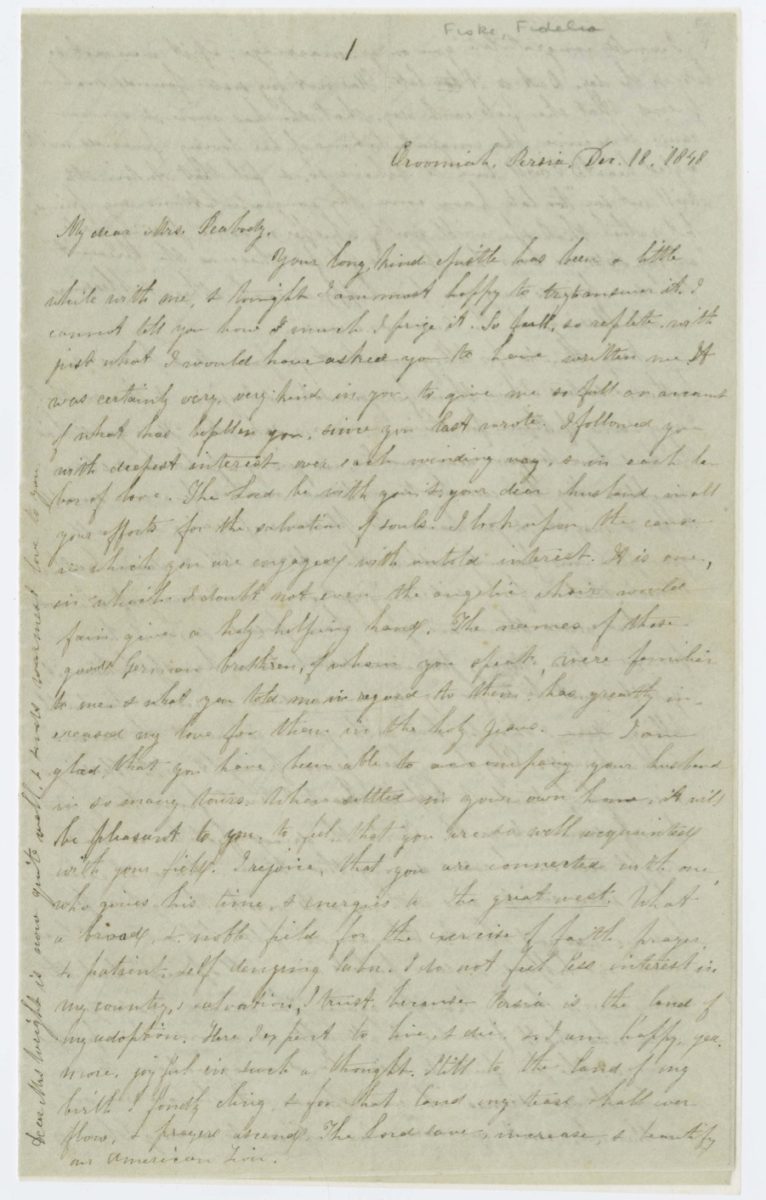 Fiske, Fidelia
1
Oroomiah, Persia, Dec. 18, 1848
My dear Mrs. Peabody,
Your long, kind epistle has been a little
while with me, & tonight I am most happy to try to answer it. I
cannot tell you how much I prize it. So full, so replete with
just what I would have asked you to have written me. It
was certainly very, very kind in you to give me so full an account
of what has befallen you, since you last wrote. I followed you
with deepest interest over each winding way, & in each la-
bor of love. The Lord be with you & your dear husband in all
your efforts for the salvation of souls. I look upon the cause
in which you are engaged with untold interest. It is one,
in which I doubt not even the angelic choir would
fain give a holy helping hand. The names of those
good German brethren, of whom you speak, were familiar
to me, & what you told me in regard to them has greatly in-
creased my love for them in the holy Jesus. — I am
glad that you have been able to accompany your husband
in so many tours. When settled in your own home, it will
be pleasant to you, to feel that you are so well acquainted
with your field. I rejoice, that you are connected with one,
who gives his time, & energies to the great west. What
a broad, & noble field for the exercise of faith, prayer,
& patient self denying labor. I do not feel less interest in
my country's salvation, I trust, because Persia is the land of
my adoption. Here I expect to live, & die, & I am happy, yea
more, joyful in such a thought. Still to the land of my
birth I fondly cling, & for that land my tears shall ever
flow, & prayers ascend. The Lord save, increase, & beautify
our American Zion.
Dear Mrs Wright is now quite well, & sends warmest love to you